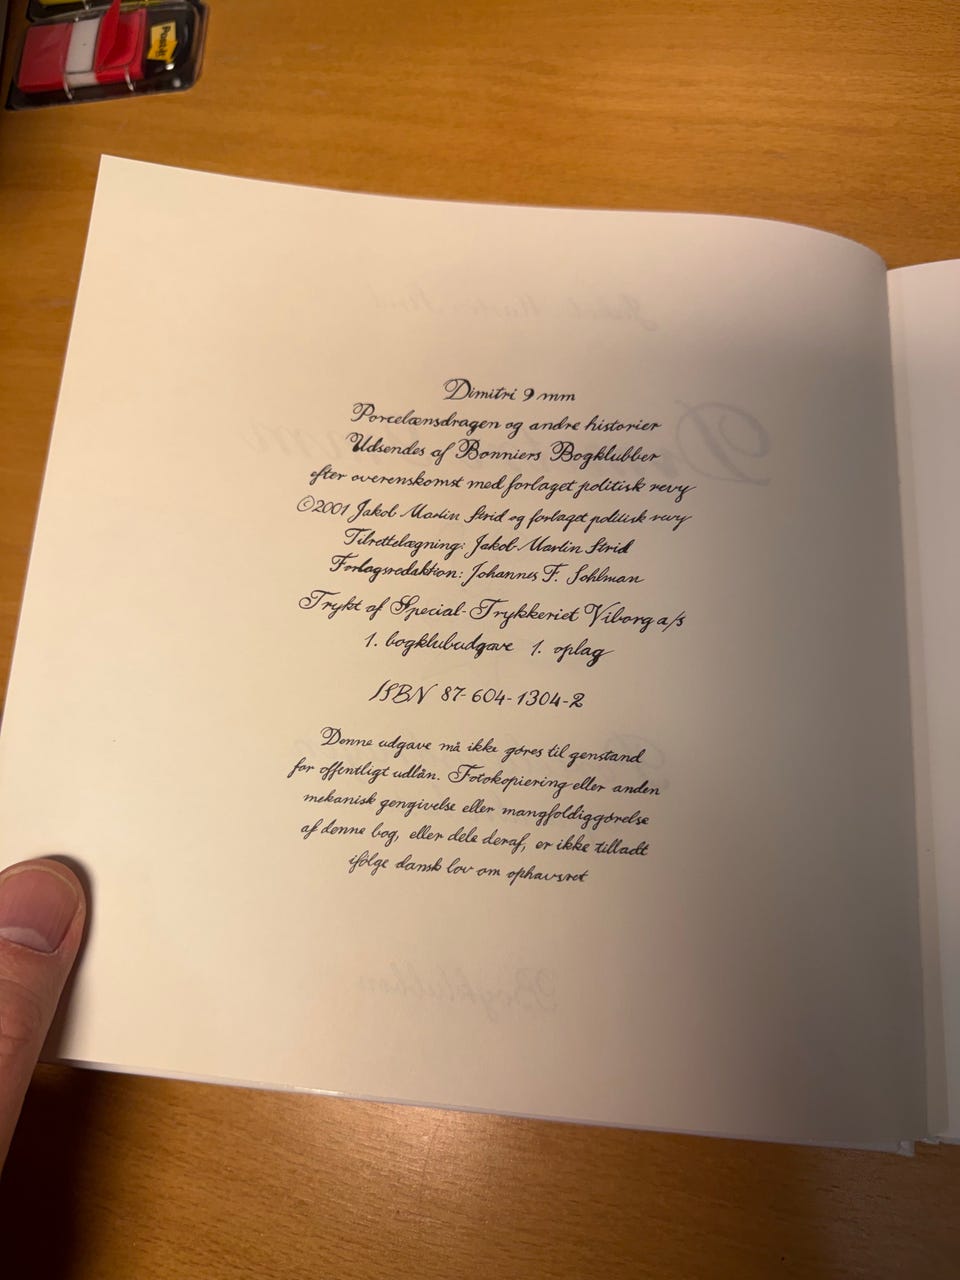 Post-it
Dimitri 9 mm
Porcelænsdragen og andre historier
Udsendes af Bonniers Bogklubber
efter overenskomst med forlaget politisk revy
©2001 Jakob Martin Strid og forlaget politisk revy
Tilrettelægning: Jakob Martin Strid
Forlagsredaktion: Johannes F. Sohlman
Trykt af Special-Trykkeriet Viborg a/s
1. bogklubudgave 1. oplag
ISBN 87-604-1304-2
Denne udgave må ikke gøres til genstand
for offentligt udlån. Fotokopiering eller anden
mekanisk gengivelse eller mangfoldiggørelse
af denne bog, eller dele deraf, er ikke tilladt
ifølge dansk lov om ophavsret
Bogklubben